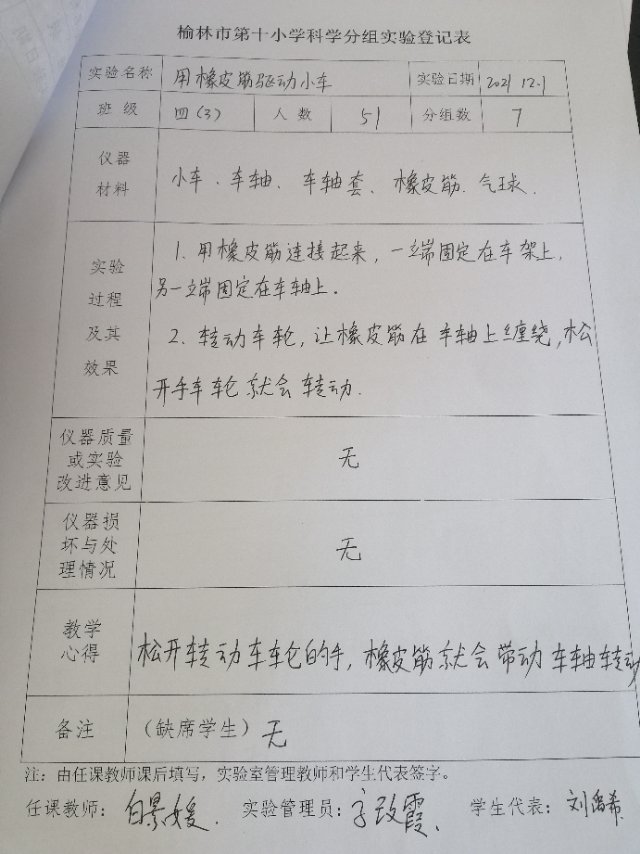 榆林市第十小学科学分组实验登记表
实验名称 用橡皮筋驱动小车 实验日期 2021 12.1
班级 四(3) 人数 51 分组数 7
仪器材料 小车、车轴、车轴套、橡皮筋、气球.
实验过程及其效果
1. 用橡皮筋连接起来,一端固定在车架上,
另一端固定在车轴上.
2. 转动车轮,让橡皮筋在车轴上缠绕,松
开手车轮就会转动.
仪器质量或实验改进意见 无
仪器损坏与处理情况 无
教学心得 松开转动车车仑的手,橡皮筋就会带动车轴转动
备注 (缺席学生) 无
注:由任课教师课后填写,实验室管理教师和学生代表签字。
任课教师:白景媛. 实验管理员: 学生代表:刘禹希